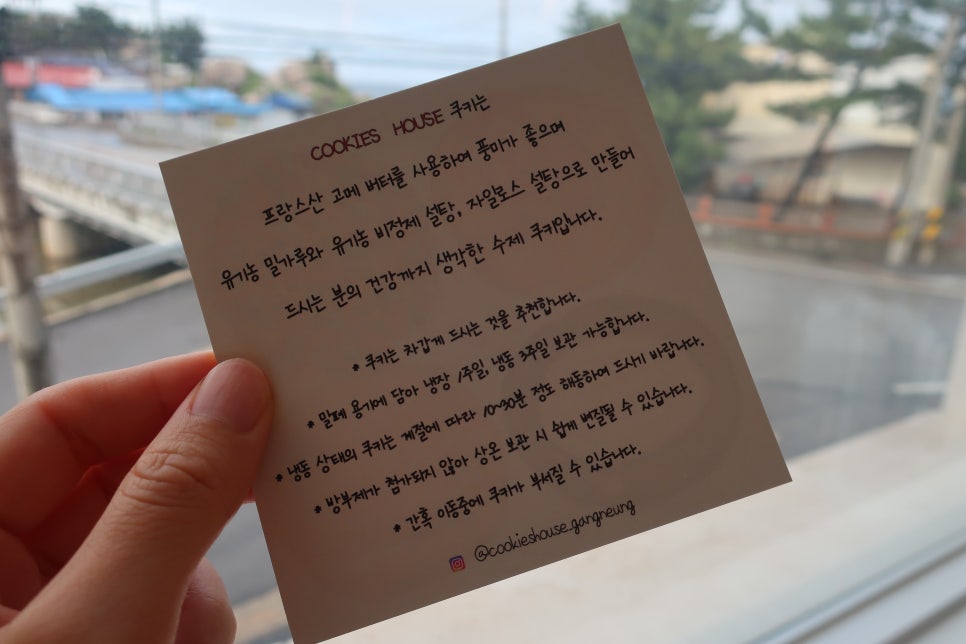 COOKIES HOUSE 쿠키는
프랑스산 고메 버터를 사용하여 풍미가 좋으며
유기농 밀가루와 유기농 비정제 설탕, 자일로스 설탕으로 만들어
드시는 분의 건강까지 생각한 수제 쿠키입니다.
* 쿠키는 차갑게 드시는 것을 추천합니다.
* 밀폐 용기에 담아 냉장 1주일, 냉동 3주일 보관 가능합니다.
* 냉동 상태의 쿠키는 계절에 따라 10~30분 정도 해동하여 드시기 바랍니다.
* 방부제가 첨가되지 않아 상온 보관 시 쉽게 변질될 수 있습니다.
* 간혹 이동중에 쿠키가 부서질 수 있습니다.
@cookieshouse_gangneung